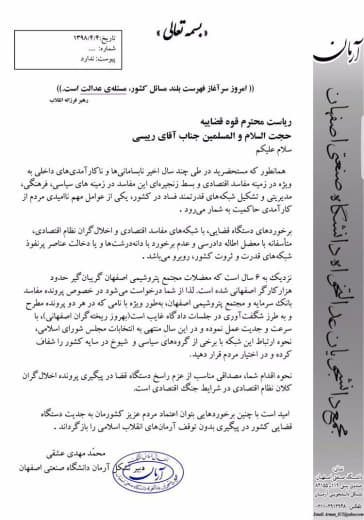 «بسمه تعالی»
تاریخ: ۱۳۹۸/۴/۴
شماره: ...
پیوست: ندارد
آرمان
مجمع دانشجویان عدالتخواه دانشگاه صنعتی اصفهان
(( امروز سرآغاز فهرست بلند مسائل کشور، مسئله‌ی عدالت است.))
رهبر فرزانه انقلاب
ریاست محترم قوه قضاییه
حجت السلام و المسلمین جناب آقای رییسی
سلام علیکم
همانطور که مستحضرید در طی چند سال اخیر نابسامانی‌ها و ناکارآمدی‌های داخلی به
ویژه در زمینه مفاسد اقتصادی و بسط زنجیره‌ای این مفاسد در زمینه های سیاسی، فرهنگی،
مدیریتی و تشکیل شبکه‌های قدرتمند فساد در کشور، یکی از عوامل مهم ناامیدی مردم از
کارآمدی حاکمیت به شمار می‌رود.
برخوردهای دستگاه قضایی، با شبکه‌های مفاسد اقتصادی و اخلال‌گران نظام اقتصادی،
متأسفانه با معضل اطاله دادرسی و عدم برخورد با دانه‌درشت‌ها و یا دخالت عناصر پرنفوذ
شبکه‌های قدرت و ثروت کشور، روبرو می‌باشد.
نزدیک به ۶ سال است که معضلات مجتمع پتروشیمی اصفهان گریبان‌گیر حدود
هزار کارگر اصفهانی شده است. لذا از شما درخواست می‌شود در خصوص پرونده مفاسد
بانک سرمایه و مجتمع پتروشیمی اصفهان، به‌طور ویژه با نامی که در هر دو پرونده مطرح
و به طرز شگفت‌آوری در جلسات دادگاه غایب است(بهروز ریخته‌گران اصفهانی)، با
سرعت و جدیت عمل نموده و در این سال منتهی به انتخابات مجلس شورای اسلامی،
نحوه ارتباط این شبکه با برخی از گروه‌های سیاسی و شیوخ در سایه کشور را شفاف
کرده و در اختیار مردم قرار دهید.
نحوه اقدام شما، مصداقی مناسب از عزم راسخ دستگاه قضا در پیگیری پرونده اخلال‌گران
کلان نظام اقتصادی در شرایط جنگ اقتصادی است.
امید است با چنین برخوردهایی بتوان اعتماد مردم عزیز کشورمان به جدیت دستگاه
قضایی کشور در پیگیری بدون توقف آرمان‌های انقلاب اسلامی را بازگرداند.
محمّد مهدی عشقی
دبیر تشکل آرمان دانشگاه صنعتی اصفهان
آرمان
نشانی
دانشگاه صنعتی اصفهان